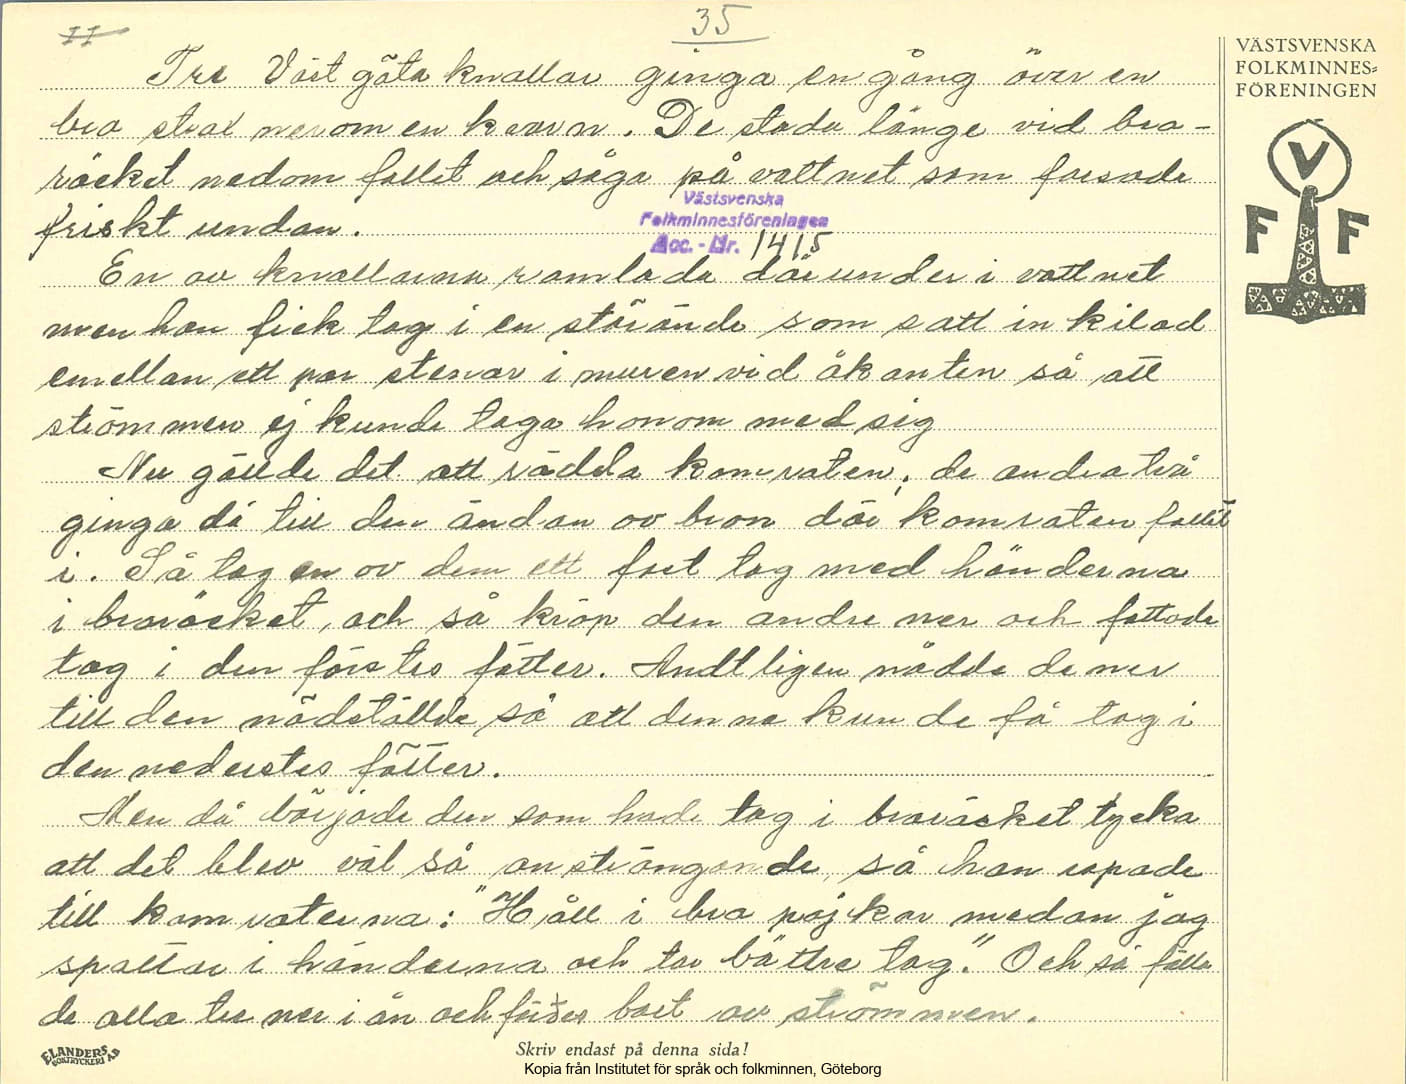 II
35
VÄSTSVENSKA
FOLKMINNES=
FÖRENINGEN
V
F F
Tre Väst göta knallar ginga en gång över en
bro strax nerom en kvarn. De stodo länge vid bro-
räcket nedom fallet och sågo på vattnet som forsade
friskt undan.
Västsvenska
Folkminnesföreningen
Acc. - Nr. 1415
En av knallarna ramlade därunder i vattnet
men han fick tag i en störände som satt in kilad
emellan ett par stenar i muren vid åkanten så att
strömmen ej kunde taga honom med sig
Nu gällde det att rädda kamraten, de andra två
ginga då till den ändan av bron där kamraten fallit
i. Så tog en av dem ett fast tag med händerna
i broräcket, och så kröp den andre ner och fattade
tag i den förstes fötter. Andtligen nådde de ner
till den nödställde så att denne kunde få tag i
den nederstes fötter.
Men då började den som hade tag i broräcket tycka
att det blev väl så ansträngande, så han ropade
till kamraterna: "Håll i bra pojkar medan jag
spottar i händerna och tar bättre tag." Och så föllo
de alla tre ner i ån och fördes bort av strömmen.
ELANDERS
BOKTRYCKERI AB
Skriv endast på denna sida!
Kopia från Institutet för språk och folkminnen, Göteborg